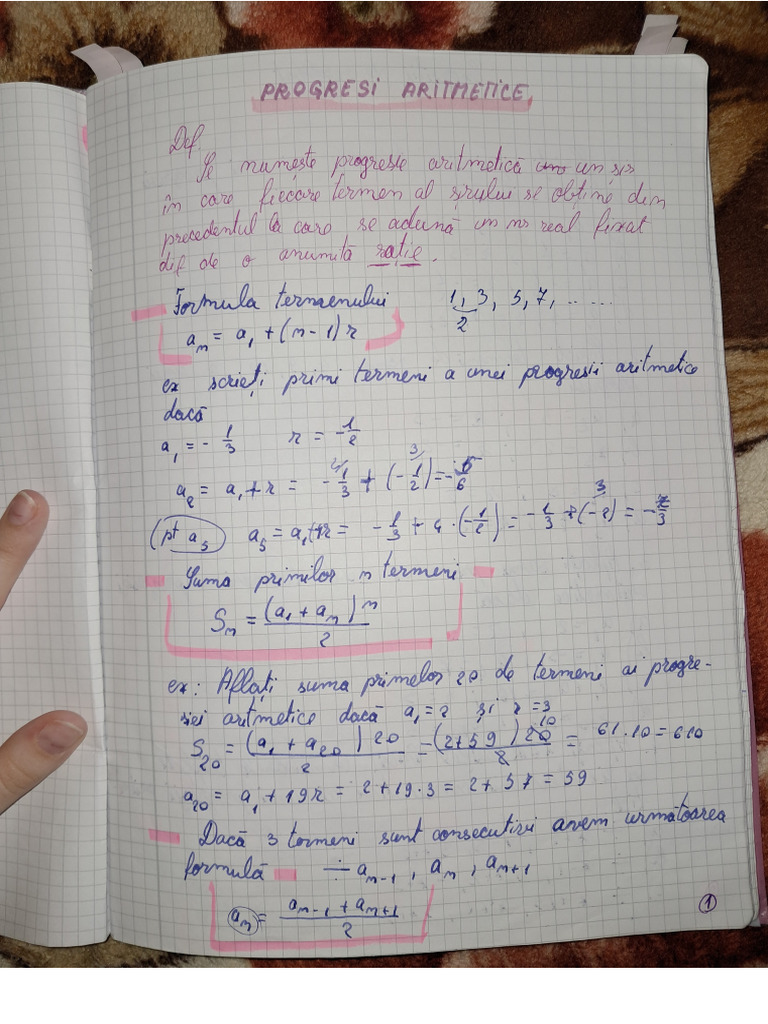 PROGRESI ARITMETICE
Def.
Se numește progresie aritmetică un șir
în care fiecare termen al șirului se obține din
precedentul la care se adună un nr real fixat
dif de o anumită rație.
Formula termenului 1, 3, 5, 7, ......
2
aₙ = a₁ + (n-1) r
ex scrieți primi termeni a unei progresii aritmetice
dacă
a₁ = - 1/3 r = - 1/2
a₂ = a₁ + r = - 1/3 + (- 1/2) = - 5/6
(pt a₅) a₅ = a₁ + r = - 1/3 + 4 · (- 1/2) = - 1/3 + (-2) = - 7/3
Suma primilor n termeni
Sₙ = (a₁ + aₙ) n / 2
ex: Aflați suma primelor 20 de termeni ai progre-
siei aritmetice dacă a₁ = 2 și r = 3
S₂₀ = (a₁ + a₂₀) 20 / 2 = (2+59) 20 / 2 = 61 · 10 = 610
a₂₀ = a₁ + 19r = 2 + 19 · 3 = 2 + 57 = 59
Dacă 3 termeni sunt consecutivi avem următoarea
formulă ÷ aₙ₋₁ , aₙ , aₙ₊₁
aₙ = aₙ₋₁ + aₙ₊₁ / 2
1